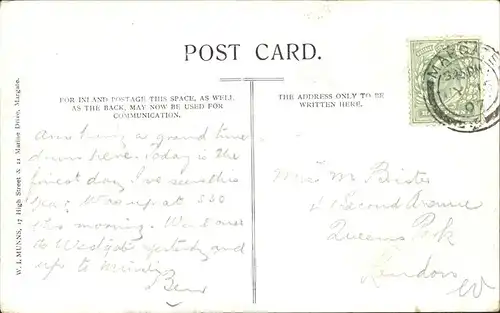 POST CARD.
FOR INLAND POSTAGE THIS SPACE, AS WELL
AS THE BACK, MAY NOW BE USED FOR
COMMUNICATION.
THE ADDRESS ONLY TO BE
WRITTEN HERE.
MARGATE
07
Am having a grand time
down here. Today is the
finest day I've seen this
year. Was up at 5 30
this morning. Went over
to Westgate yesterday and
up to
Ben
M.
Second Avenue
Queens Park
London
W
W. J. MUNNS, 17 High Street & 21 Marine Drive, Margate.